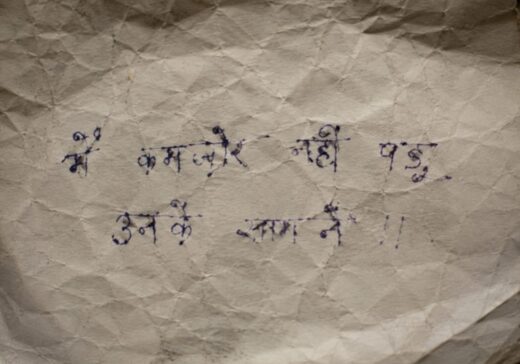 मैं कमजोर नही पडु
उनके सामने !!